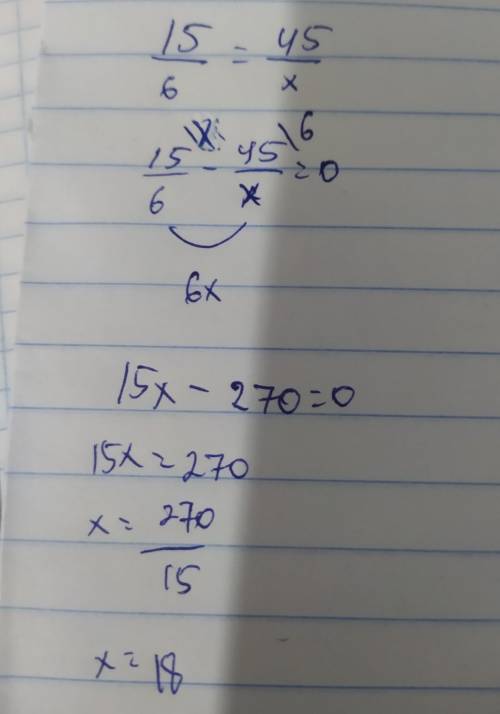 15/6 = 45/x
15\x/6 - 45\6/x = 0
6x
15x - 270 = 0
15x = 270
x = 270/15
x = 18